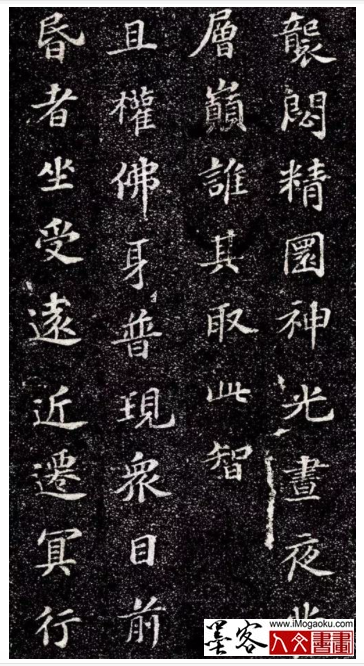 襲閟精圜神光晝夜
層巔誰其取此智
且權佛身普現衆目前
昏者坐受遠近遷冥行
www.iMogaoku.com
墨客人文書畫